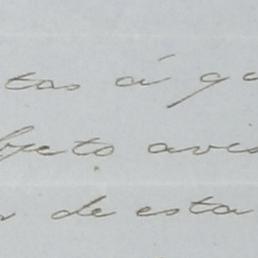 tas á qu
bjeto avis
de esta